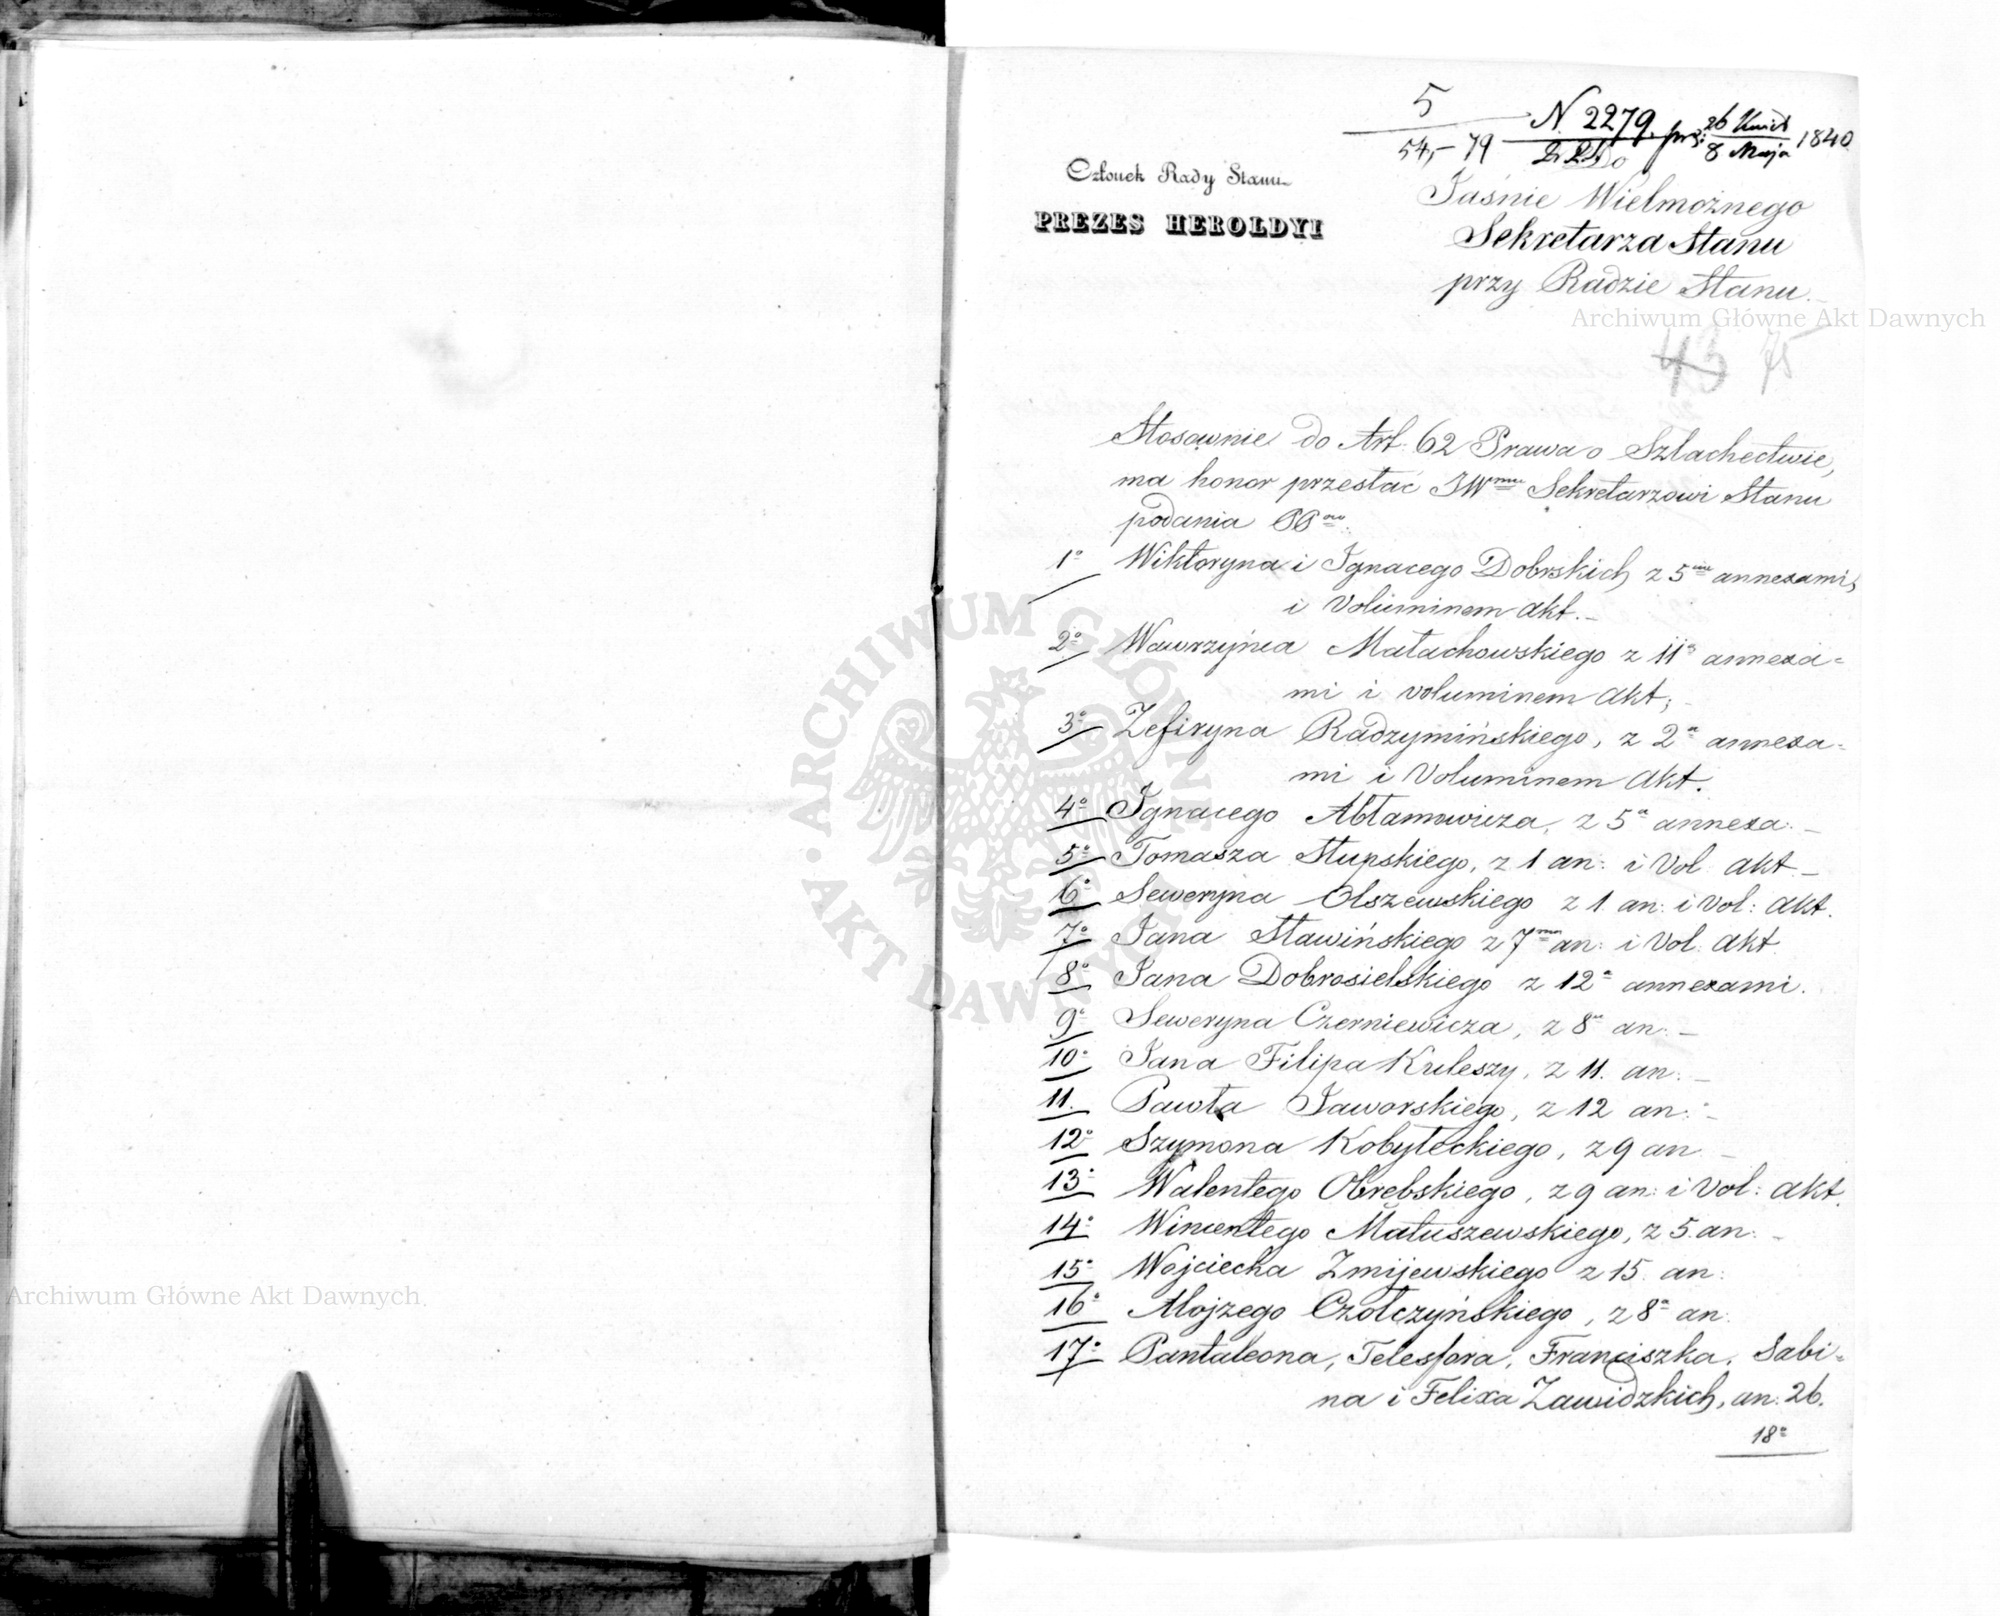 5
54,– 79
N 2279. prz: 26 Kwiet / 8 Maja 1840
Członek Rady Stanu
PREZES HEROLDYI
Do
Jaśnie Wielmożnego
Sekretarza Stanu
przy Radzie Stanu.
Archiwum Główne Akt Dawnych
43 75
Stosownie do Art. 62 Prawa o Szlachectwie,
ma honor przesłać JWmu Sekretarzowi Stanu
podania PPow.
1o Wiktoryna i Ignacego Dobrskich z 5ciu annexami,
i Voluminem Akt.
2o Wawrzyńca Małachowskiego z 11a annexa=
mi i voluminem Akt;
3o Zefiryna Radzymińskiego, z 2a annexa=
mi i Voluminem Akt.
4o Ignacego Abłamowicza, z 5a annexa.
5o Tomasza Słupskiego, z 1 an: i Vol. Akt
6o Seweryna Olszewskiego z 1. an: i Vol: Akt.
7o Jana Sławińskiego z 7mn an: i Vol. Akt
8o Jana Dobrosielskiego z 12a annexami.
9o Seweryna Czerniewicza, z 8a an:
10o Jana Filipa Kuleszy, z 11. an:
11. Pawła Jaworskiego, z 12 an:
12o Szymona Kobyłeckiego, z 9 an
13o Walentego Obrebskiego, z 9 an: i Vol: Akt.
14o Wincentego Matuszewskiego, z 5. an:
15o Wojciecha Zmijewskiego z 15. an:
16o Alojzego Czołczyńskiego, z 8a an:
17o Pantaleona, Telesfora, Franciszka, Sabi=
na i Felixa Zawidzkich, an: 26.
18o
ARCHIWUM GŁÓWNE AKT DAWNYCH
Archiwum Główne Akt Dawnych